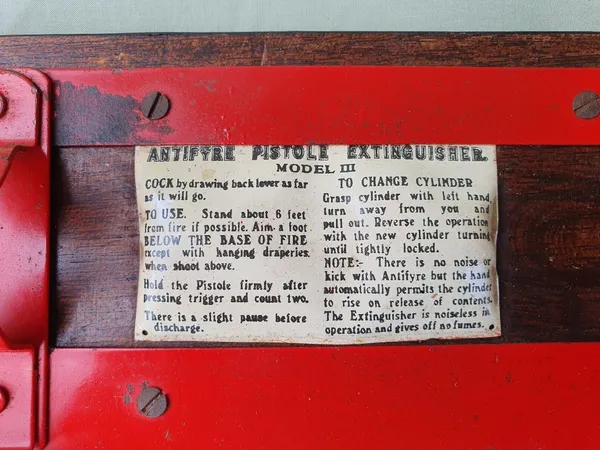 ANTIFYRE PISTOLE EXTINGUISHER.
MODEL III
COCK by drawing back lever as far
as it will go.
TO USE. Stand about 6 feet
from fire if possible. Aim a foot
BELOW THE BASE OF FIRE
except with hanging draperies,
when shoot above.
Hold the Pistole firmly after
pressing trigger and count two.
There is a slight pause before
discharge.
TO CHANGE CYLINDER
Grasp cylinder with left hand,
turn away from you and
pull out. Reverse the operation
with the new cylinder turning
until tightly locked.
NOTE:- There is no noise or
kick with Antifyre but the hand
automatically permits the cylinder
to rise on release of contents.
The Extinguisher is noiseless in
operation and gives off no fumes.